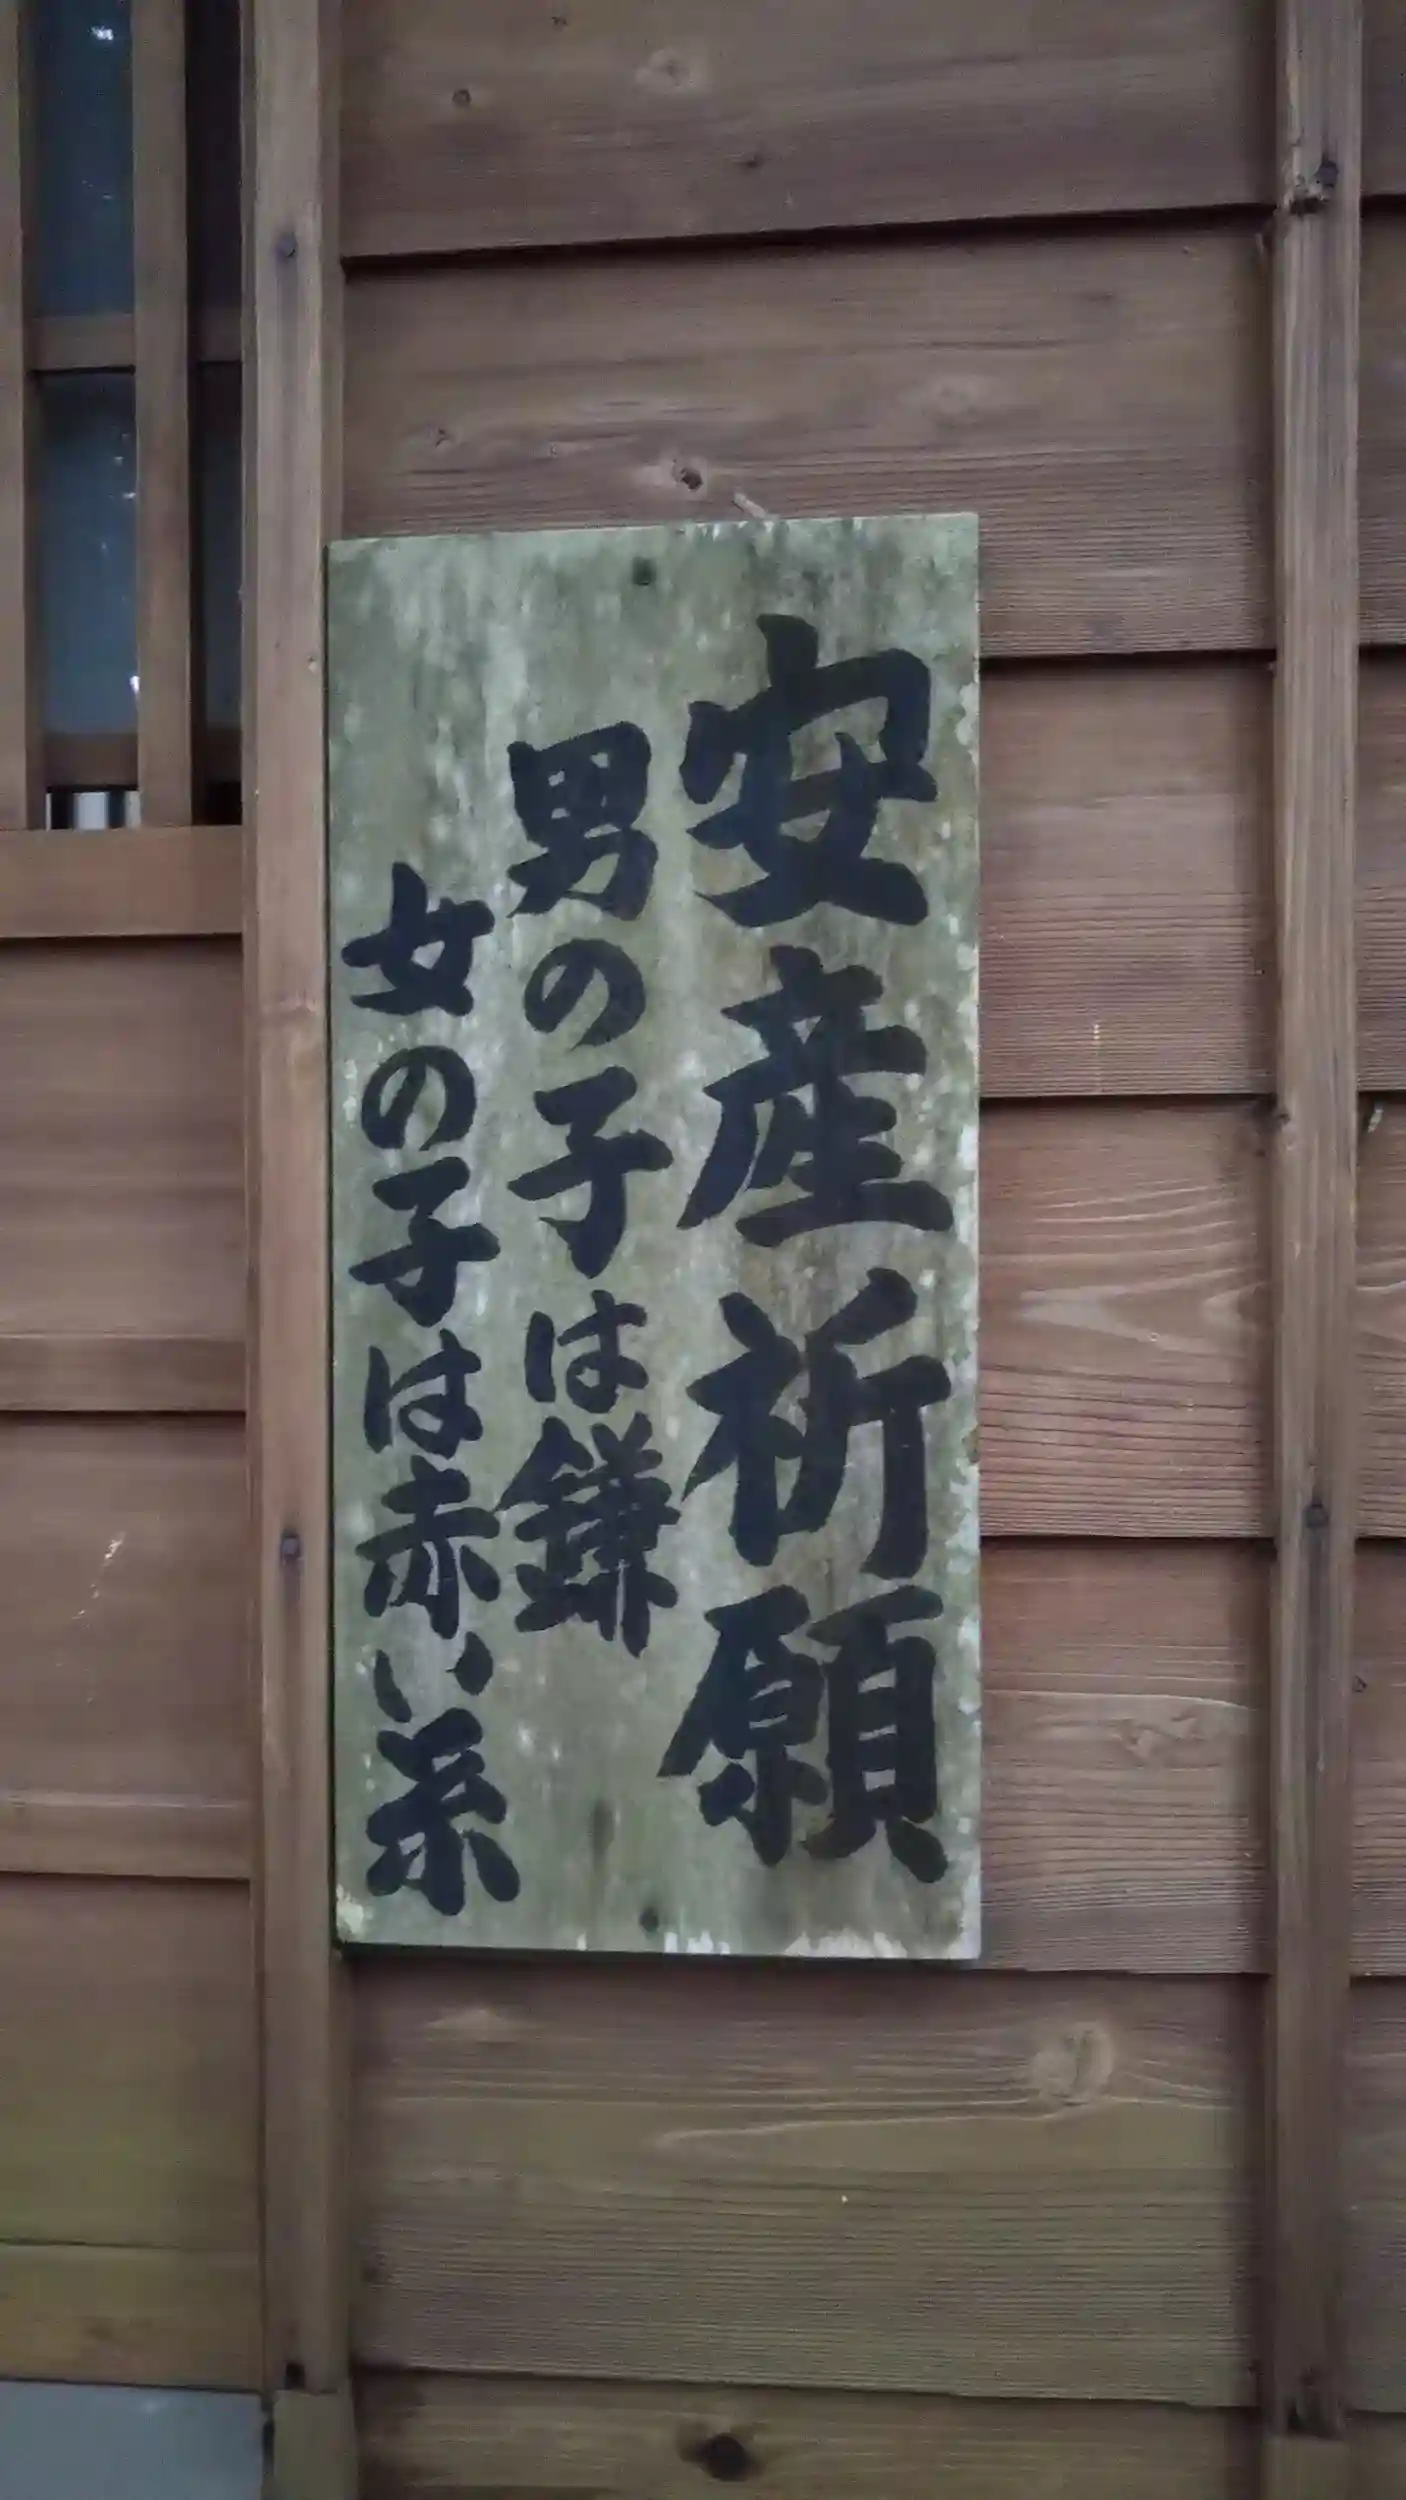 安産祈願
男の子は鎌
女の子は赤い糸